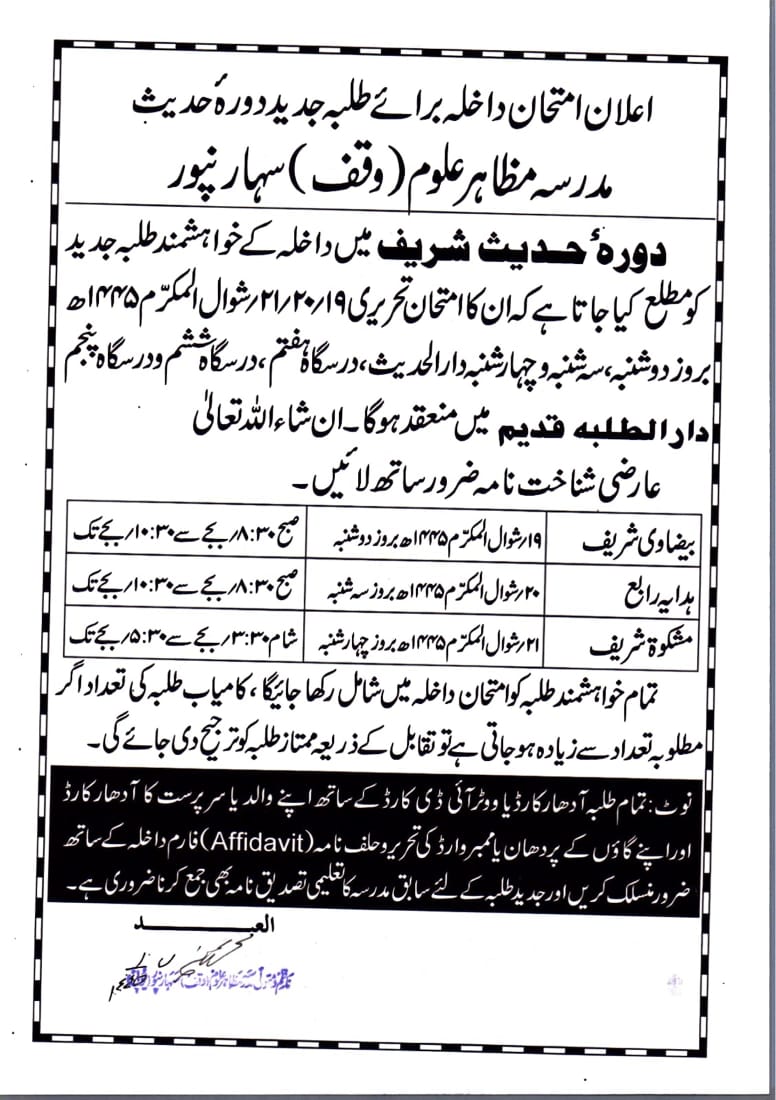 اعلان امتحان داخلہ برائے طلبہ جدید دورۂ حدیث
مدرسہ مظاہر علوم (وقف) سہارنپور
دورۂ حدیث شریف میں داخلہ کے خواہشمند طلبہ جدید
کو مطلع کیا جاتا ہے کہ ان کا امتحان تحریری ۱۹؍۲۰؍۲۱؍شوال المکرّم ۱۴۴۵ھ
بروز دوشنبہ، سہ شنبہ و چہار شنبہ دارالحدیث، درسگاہ ہفتم، درسگاہ ششم و درسگاہ پنجم
دار الطلبہ قدیم میں منعقد ہوگا۔ ان شاء اللہ تعالیٰ
عارضی شناخت نامہ ضرور ساتھ لائیں۔
بیضاوی شریف ۱۹؍شوال المکرّم ۱۴۴۵ھ بروز دوشنبہ صبح ۸:۳۰؍بجے سے ۱۰:۳۰؍بجے تک
ہدایہ رابع ۲۰؍شوال المکرّم ۱۴۴۵ھ بروز سہ شنبہ صبح ۸:۳۰؍بجے سے ۱۰:۳۰؍بجے تک
مشکوٰۃ شریف ۲۱؍شوال المکرّم ۱۴۴۵ھ بروز چہار شنبہ شام ۳:۳۰؍بجے سے ۵:۳۰؍بجے تک
تمام خواہشمند طلبہ کو امتحان داخلہ میں شامل رکھا جائیگا، کامیاب طلبہ کی تعداد اگر
مطلوبہ تعداد سے زیادہ ہو جاتی ہے تو تقابل کے ذریعہ ممتاز طلبہ کو ترجیح دی جائے گی۔
نوٹ: تمام طلبہ آدھار کارڈ یا ووٹر آئی ڈی کارڈ کے ساتھ اپنے والد یا سرپرست کا آدھار کارڈ
اور اپنے گاؤں کے پردھان یا ممبر وارڈ کی تحریر و حلف نامہ (Affidavit) فارم داخلہ کے ساتھ
ضرور منسلک کریں اور جدید طلبہ کے لئے سابق مدرسہ کا تعلیمی تصدیق نامہ بھی جمع کرنا ضروری ہے۔
العبد